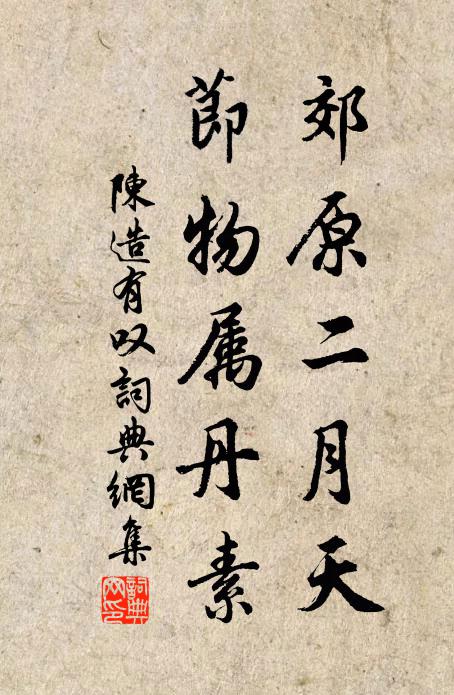 郊原二月天
節物属丹素
陳造有叹詞典網集
詞典網印